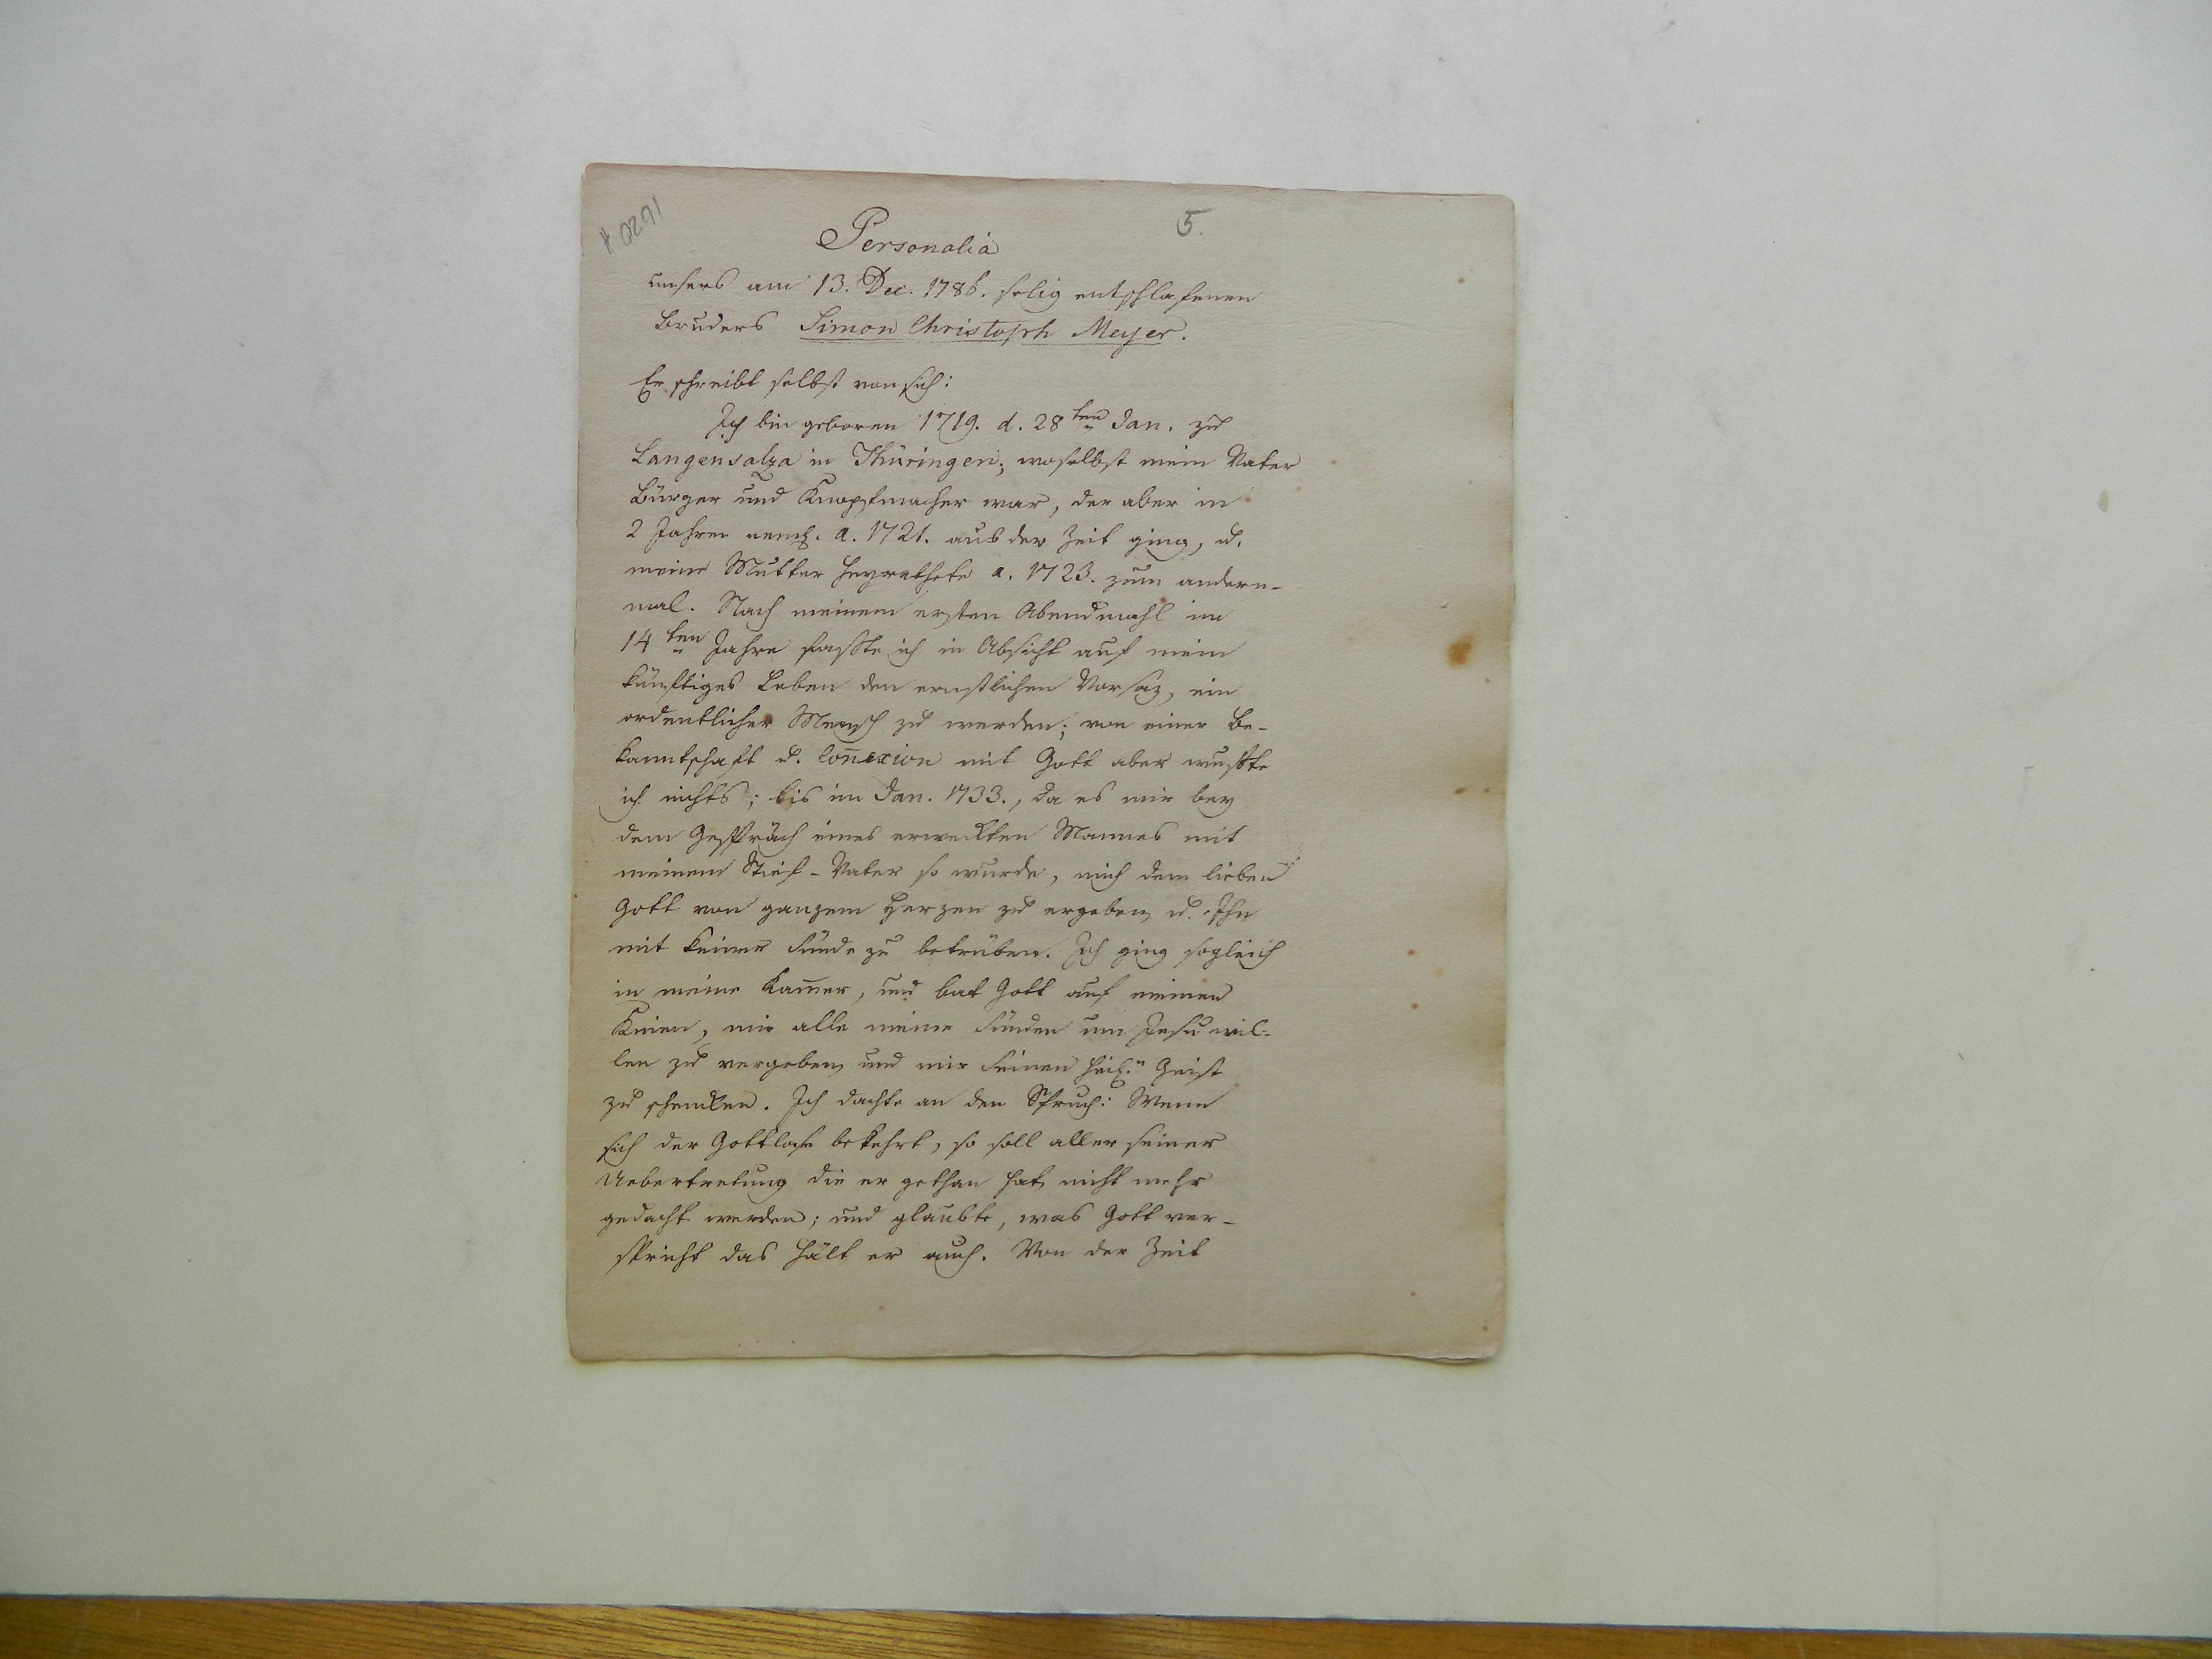 # 0291
5.
Personalia
unsers am 13. Dec. 1786. selig entschlafenen
Bruders Simon Christoph Meyer.
Er schreibt selbst von sich:
Ich bin geboren 1719. d. 28ten Jan. zu
Langensalza in Thüringen; woselbst mein Vater
Bürger und Knopfmacher war, der aber in
2 Jahren neml. a. 1721. aus der Zeit ging, u.
meine Mutter heyrathete a. 1723. zum andern-
mal. Nach meinem ersten Abendmahl im
14ten Jahre faßte ich in Absicht auf mein
künftiges Leben den ernstlichen Vorsaz, ein
ordentlicher Mensch zu werden; von einer Be-
kanntschaft u. Con̄exion mit Gott aber wußte
ich nichts; bis im Jan. 1733., da es mir bey
dem Gespräch eines erweckten Mannes mit
meinem Stief-Vater so wurde, mich dem lieben
Gott von ganzem Herzen zu ergeben, u. Ihn
mit keiner Sünde zu betrüben. Ich ging sogleich
in meine Kam̄er, und bat Gott auf meinen
Knien, mir alle meine Sünden um Jesu wil-
len zu vergeben, und mir seinen heil.n Geist
zu schenken. Ich dachte an den Spruch: Wenn
sich der Gottlose bekehrt, so soll aller seiner
Uebertretung die er gethan hat, nicht mehr
gedacht werden; und glaubte, was Gott ver-
spricht das hält er auch. Von der Zeit